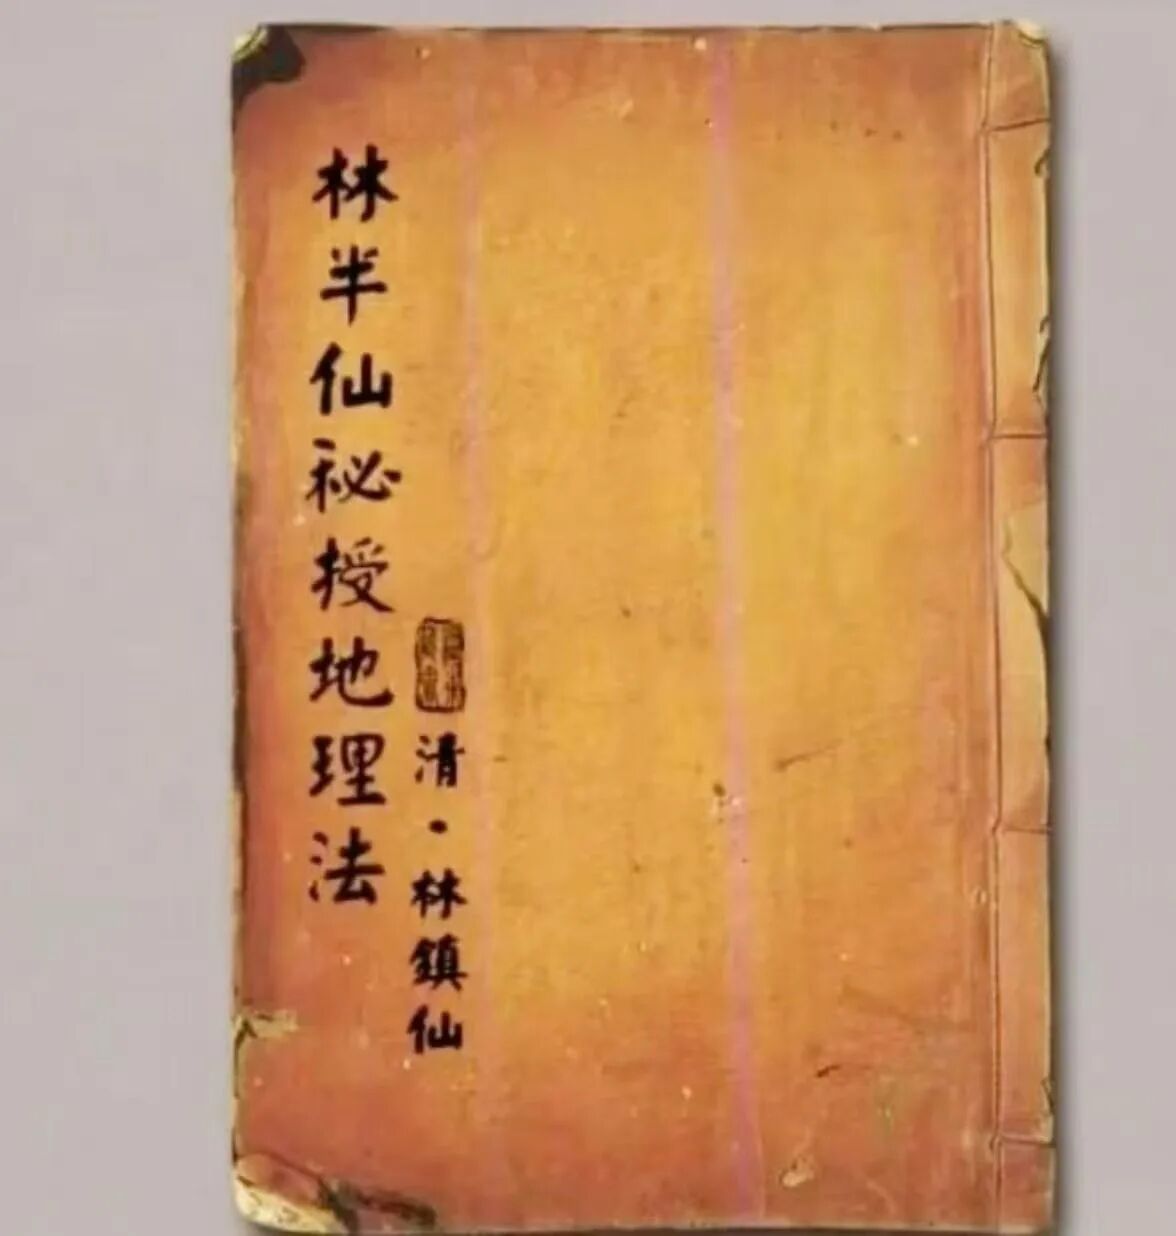 林半仙秘授地理法
清·林鎮仙